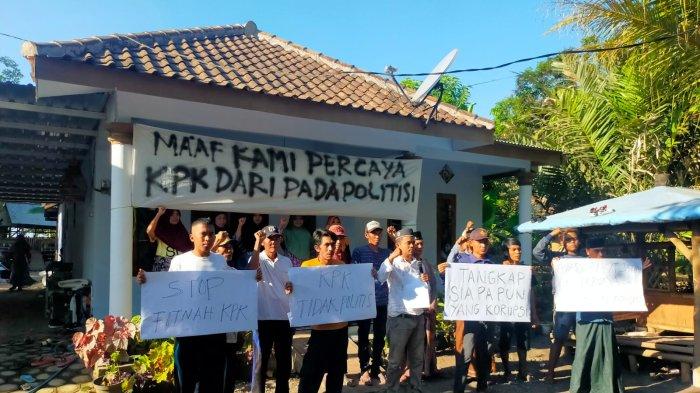 MA'AF KAMI PERCAYA
KPK DARI PADA POLITISI
STOP
FITNAH KPK
KPK
TIDAK POLITIS
TANGKAP
SIAPA PUN
YANG KORUPSI